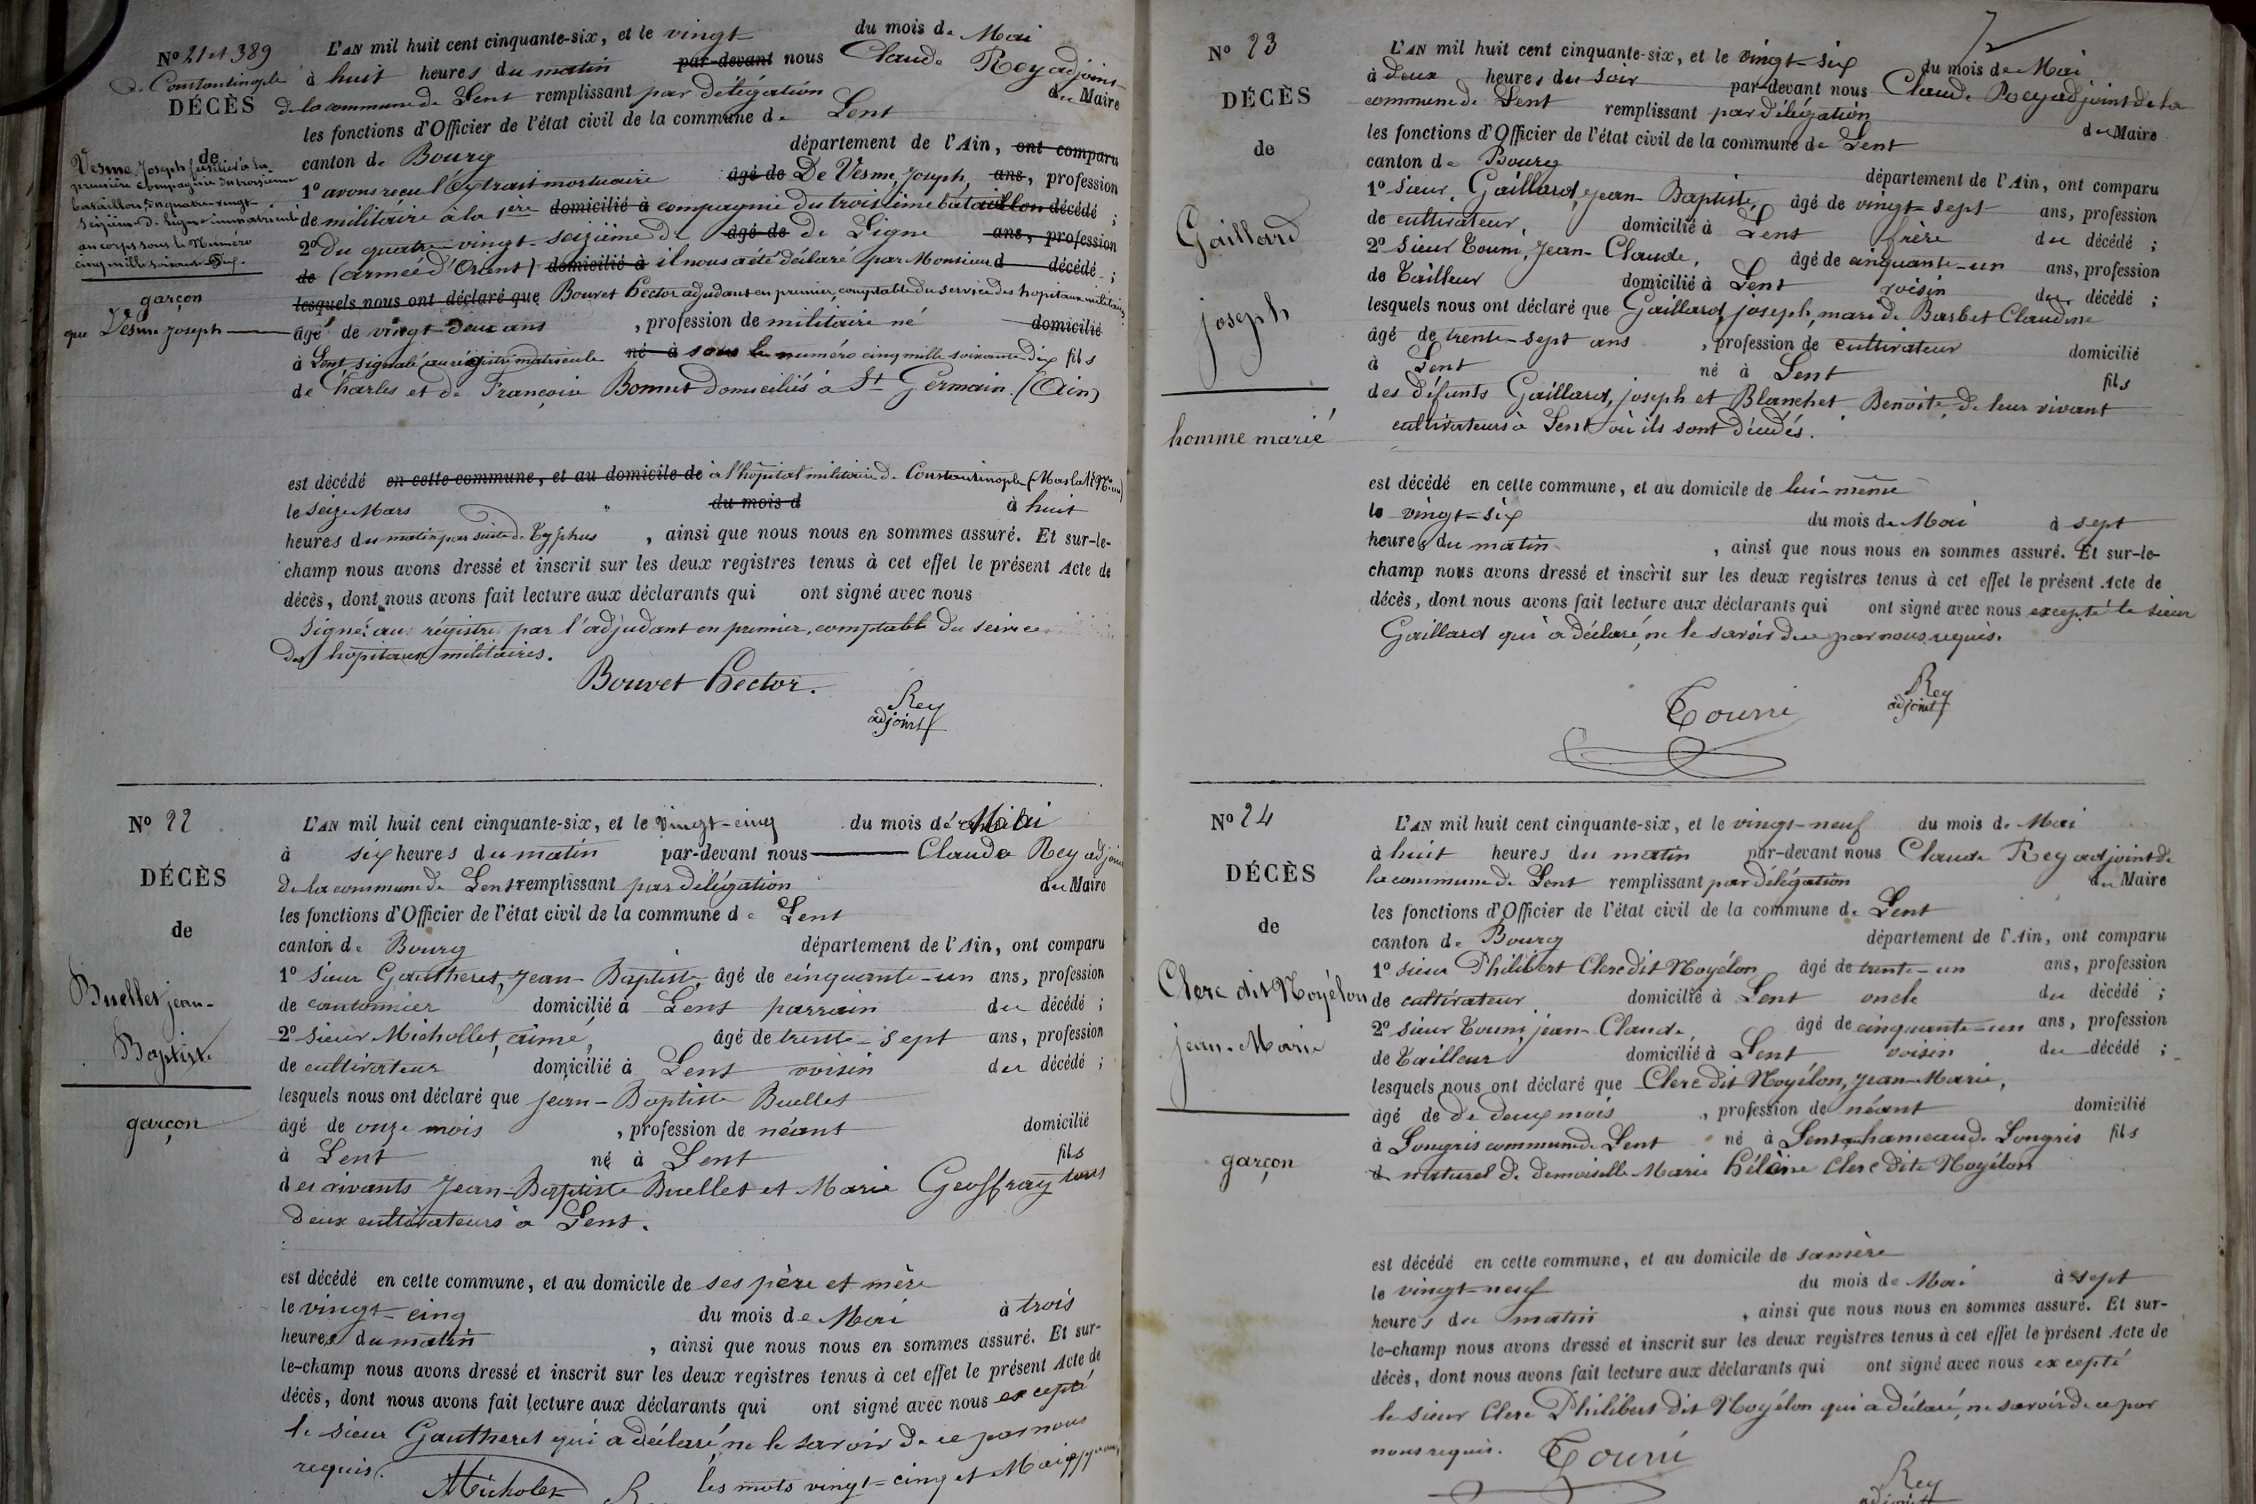 No 21 et 389
de Constantinople
DÉCÈS
de
Vesme, Joseph fusilier à la
première compagnie du troisième
bataillon du quatre-vingt-
seizième de ligne immatriculé
au corps sous le Numéro
cinq mille soixante dix.
garçon
que Vesme Joseph
L'AN mil huit cent cinquante-six, et le vingt du mois de Mai
à huit heures du matin par-devant nous Claude Rey adjoint
de la commune de Lent remplissant par délégation du Maire
les fonctions d'Officier de l'état civil de la commune de Lent
canton de Bourg département de l'Ain, ont comparu
1o avons reçu l'Extrait mortuaire âgé de De Vesme, Joseph, ans, profession
de militaire à la 1ère domicilié à compagnie du troisième bataillon décédé ;
2o Du quatre-vingt-seizième de âgé de de Ligne ans, profession
de (armée d'Orient) domicilié à il nous a été déclaré par Monsieur d décédé ;
lesquels nous ont déclaré que Bouvet hector adjudant en premier, comptable du service des hopitaux militaires
âgé de vingt-deux ans , profession de militaire né domicilié
à Lent signalé au régistre matricule né à sous le numéro cinq mille soixante dix fils
de Charles et de Françoise Bonnet domiciliés à St Germain. (Ain)
est décédé en cette commune, et au domicile de à l'hôpital militaire de Constantinople
le seize Mars du mois d à huit
heures du matin par suite de Typhus , ainsi que nous nous en sommes assuré. Et sur-le-
champ nous avons dressé et inscrit sur les deux registres tenus à cet effet le présent Acte de
décès, dont nous avons fait lecture aux déclarants qui ont signé avec nous
Signé: au régistre par l'adjudant en premier, comptable du service
des hopitaux militaires.
Bouvet hector.
Rey
adjoint
No 22
DÉCÈS
de
Buellet jean-
Baptiste
garçon
L'AN mil huit cent cinquante-six, et le vingt-cinq du mois de Mai
à six heures du matin par-devant nous Claude Rey adjoint
de la commune de Lent remplissant par délégation du Maire
les fonctions d'Officier de l'état civil de la commune de Lent
canton de Bourg département de l'Ain, ont comparu
1o sieur Gautheret, Jean-Baptiste, âgé de cinquante-un ans, profession
de cantonnier domicilié à Lent parrain du décédé ;
2o sieur Michollet, aimé, âgé de trente-sept ans, profession
de cultivateur domicilié à Lent voisin du décédé ;
lesquels nous ont déclaré que Jean-Baptiste Buellet
âgé de onze mois , profession de néant domicilié
à Lent né à Lent fils
des vivants Jean-Baptiste Buellet et Marie Geoffray tous
deux cultivateurs à Lent.
est décédé en cette commune, et au domicile de ses père et mère
le vingt-cinq du mois de Mai à trois
heures du matin , ainsi que nous nous en sommes assuré. Et sur-
le-champ nous avons dressé et inscrit sur les deux registres tenus à cet effet le présent Acte de
décès, dont nous avons fait lecture aux déclarants qui ont signé avec nous excepté
le sieur Gautheret qui a déclaré ne le savoir de ce par nous
requis.
Michollet
les mots vingt-cinq et Mai
No 23
DÉCÈS
de
Gaillard
joseph
homme marié
L'AN mil huit cent cinquante-six, et le vingt-six du mois de Mai
à deux heures du soir par-devant nous Claude Rey adjoint de la
commune de Lent remplissant par délégation du Maire
les fonctions d'Officier de l'état civil de la commune de Lent
canton de Bourg département de l'Ain, ont comparu
1o sieur Gaillard, Jean-Baptiste, âgé de vingt-sept ans, profession
de cultivateur domicilié à Lent frère du décédé ;
2o sieur Tourni, Jean-Claude, âgé de cinquante-un ans, profession
de Tailleur domicilié à Lent voisin du décédé ;
lesquels nous ont déclaré que Gaillard, joseph, mari de Barbet Claudine
âgé de trente-sept ans , profession de cultivateur domicilié
à Lent né à Lent fils
des défunts Gaillard, joseph et Blanchet Benoite, de leur vivant
cultivateurs à Lent où ils sont décédés.
est décédé en cette commune, et au domicile de lui-même
le vingt-six du mois de Mai à sept
heures du matin , ainsi que nous nous en sommes assuré. Et sur-le-
champ nous avons dressé et inscrit sur les deux registres tenus à cet effet le présent Acte de
décès, dont nous avons fait lecture aux déclarants qui ont signé avec nous excepté le sieur
Gaillard qui a déclaré, ne le savoir de ce par nous requis.
Tourni
Rey
adjoint
No 24
DÉCÈS
de
Clerc dit Noyélon
jean-Marie
garçon
L'AN mil huit cent cinquante-six, et le vingt-neuf du mois de Mai
à huit heures du matin par-devant nous Claude Rey adjoint de
la commune de Lent remplissant par délégation du Maire
les fonctions d'Officier de l'état civil de la commune de Lent
canton de Bourg département de l'Ain, ont comparu
1o sieur Philibert Clerc dit Noyélon âgé de trente-un ans, profession
de cultivateur domicilié à Lent oncle du décédé ;
2o sieur Tourni, jean-Claude, âgé de cinquante-un ans, profession
de Tailleur domicilié à Lent voisin du décédé ;
lesquels nous ont déclaré que Clerc dit Noyélon, Jean-Marie,
âgé de de deux mois , profession de néant domicilié
à Longris commune de Lent né à Lent hameau de Longris fils
d naturel de demoiselle Marie hélène Clerc dite Noyélon
est décédé en cette commune, et au domicile de sa mère
le vingt-neuf du mois de Mai à sept
heures du matin , ainsi que nous nous en sommes assuré. Et sur-
le-champ nous avons dressé et inscrit sur les deux registres tenus à cet effet le présent Acte de
décès, dont nous avons fait lecture aux déclarants qui ont signé avec nous excepté
le sieur Clerc Philibert dit Noyélon qui a déclaré, ne savoir de ce par
nous requis.
Tourni
Rey
adjoint